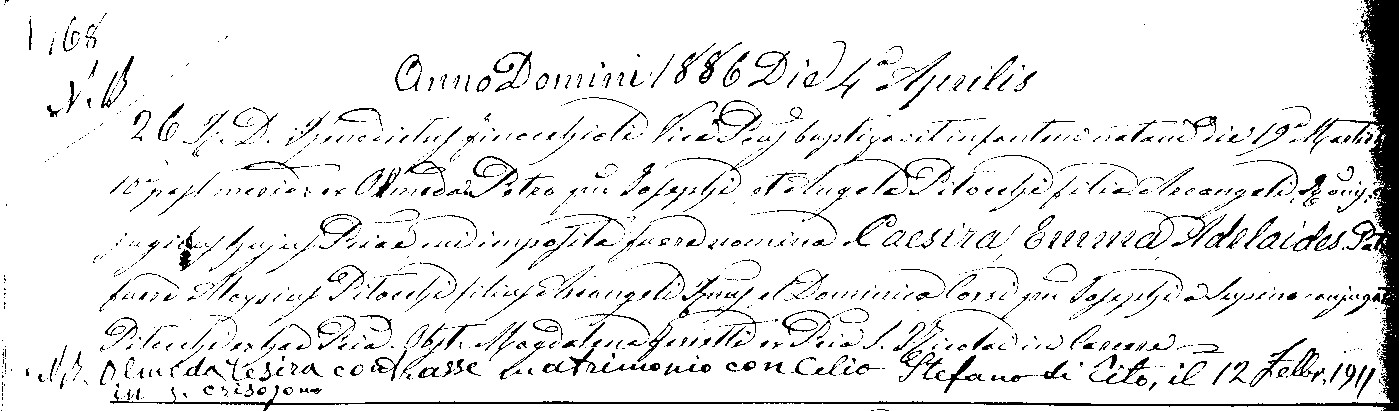 168
N. B
Anno Domini 1886 Die 4a Aprilis
26 R. D. Benedictus Finocchioli Vice baptizavit infantem natam die 19a Martii
10a post merid: ex Olmeda Petro qm Josephi, et Angela Pitocchi filia Arcangeli, Rom:
jugibus hujus Paroe cui imposita fuere nomina Caesira, Emma, Adelaides. Pat
fuere Aloysius Pitocchi filius Arcangeli et Dominica Corsi qm Josephi a Supino
Pitocchi ex hac Paroa. Obst. Magdalena ex Paroa S. Nicolai in Carcere
NB. Olmeda Cesira contrasse matrimonio con Celio Stefano di Cito, il 12 Febbr. 1911
in S. Crisogono